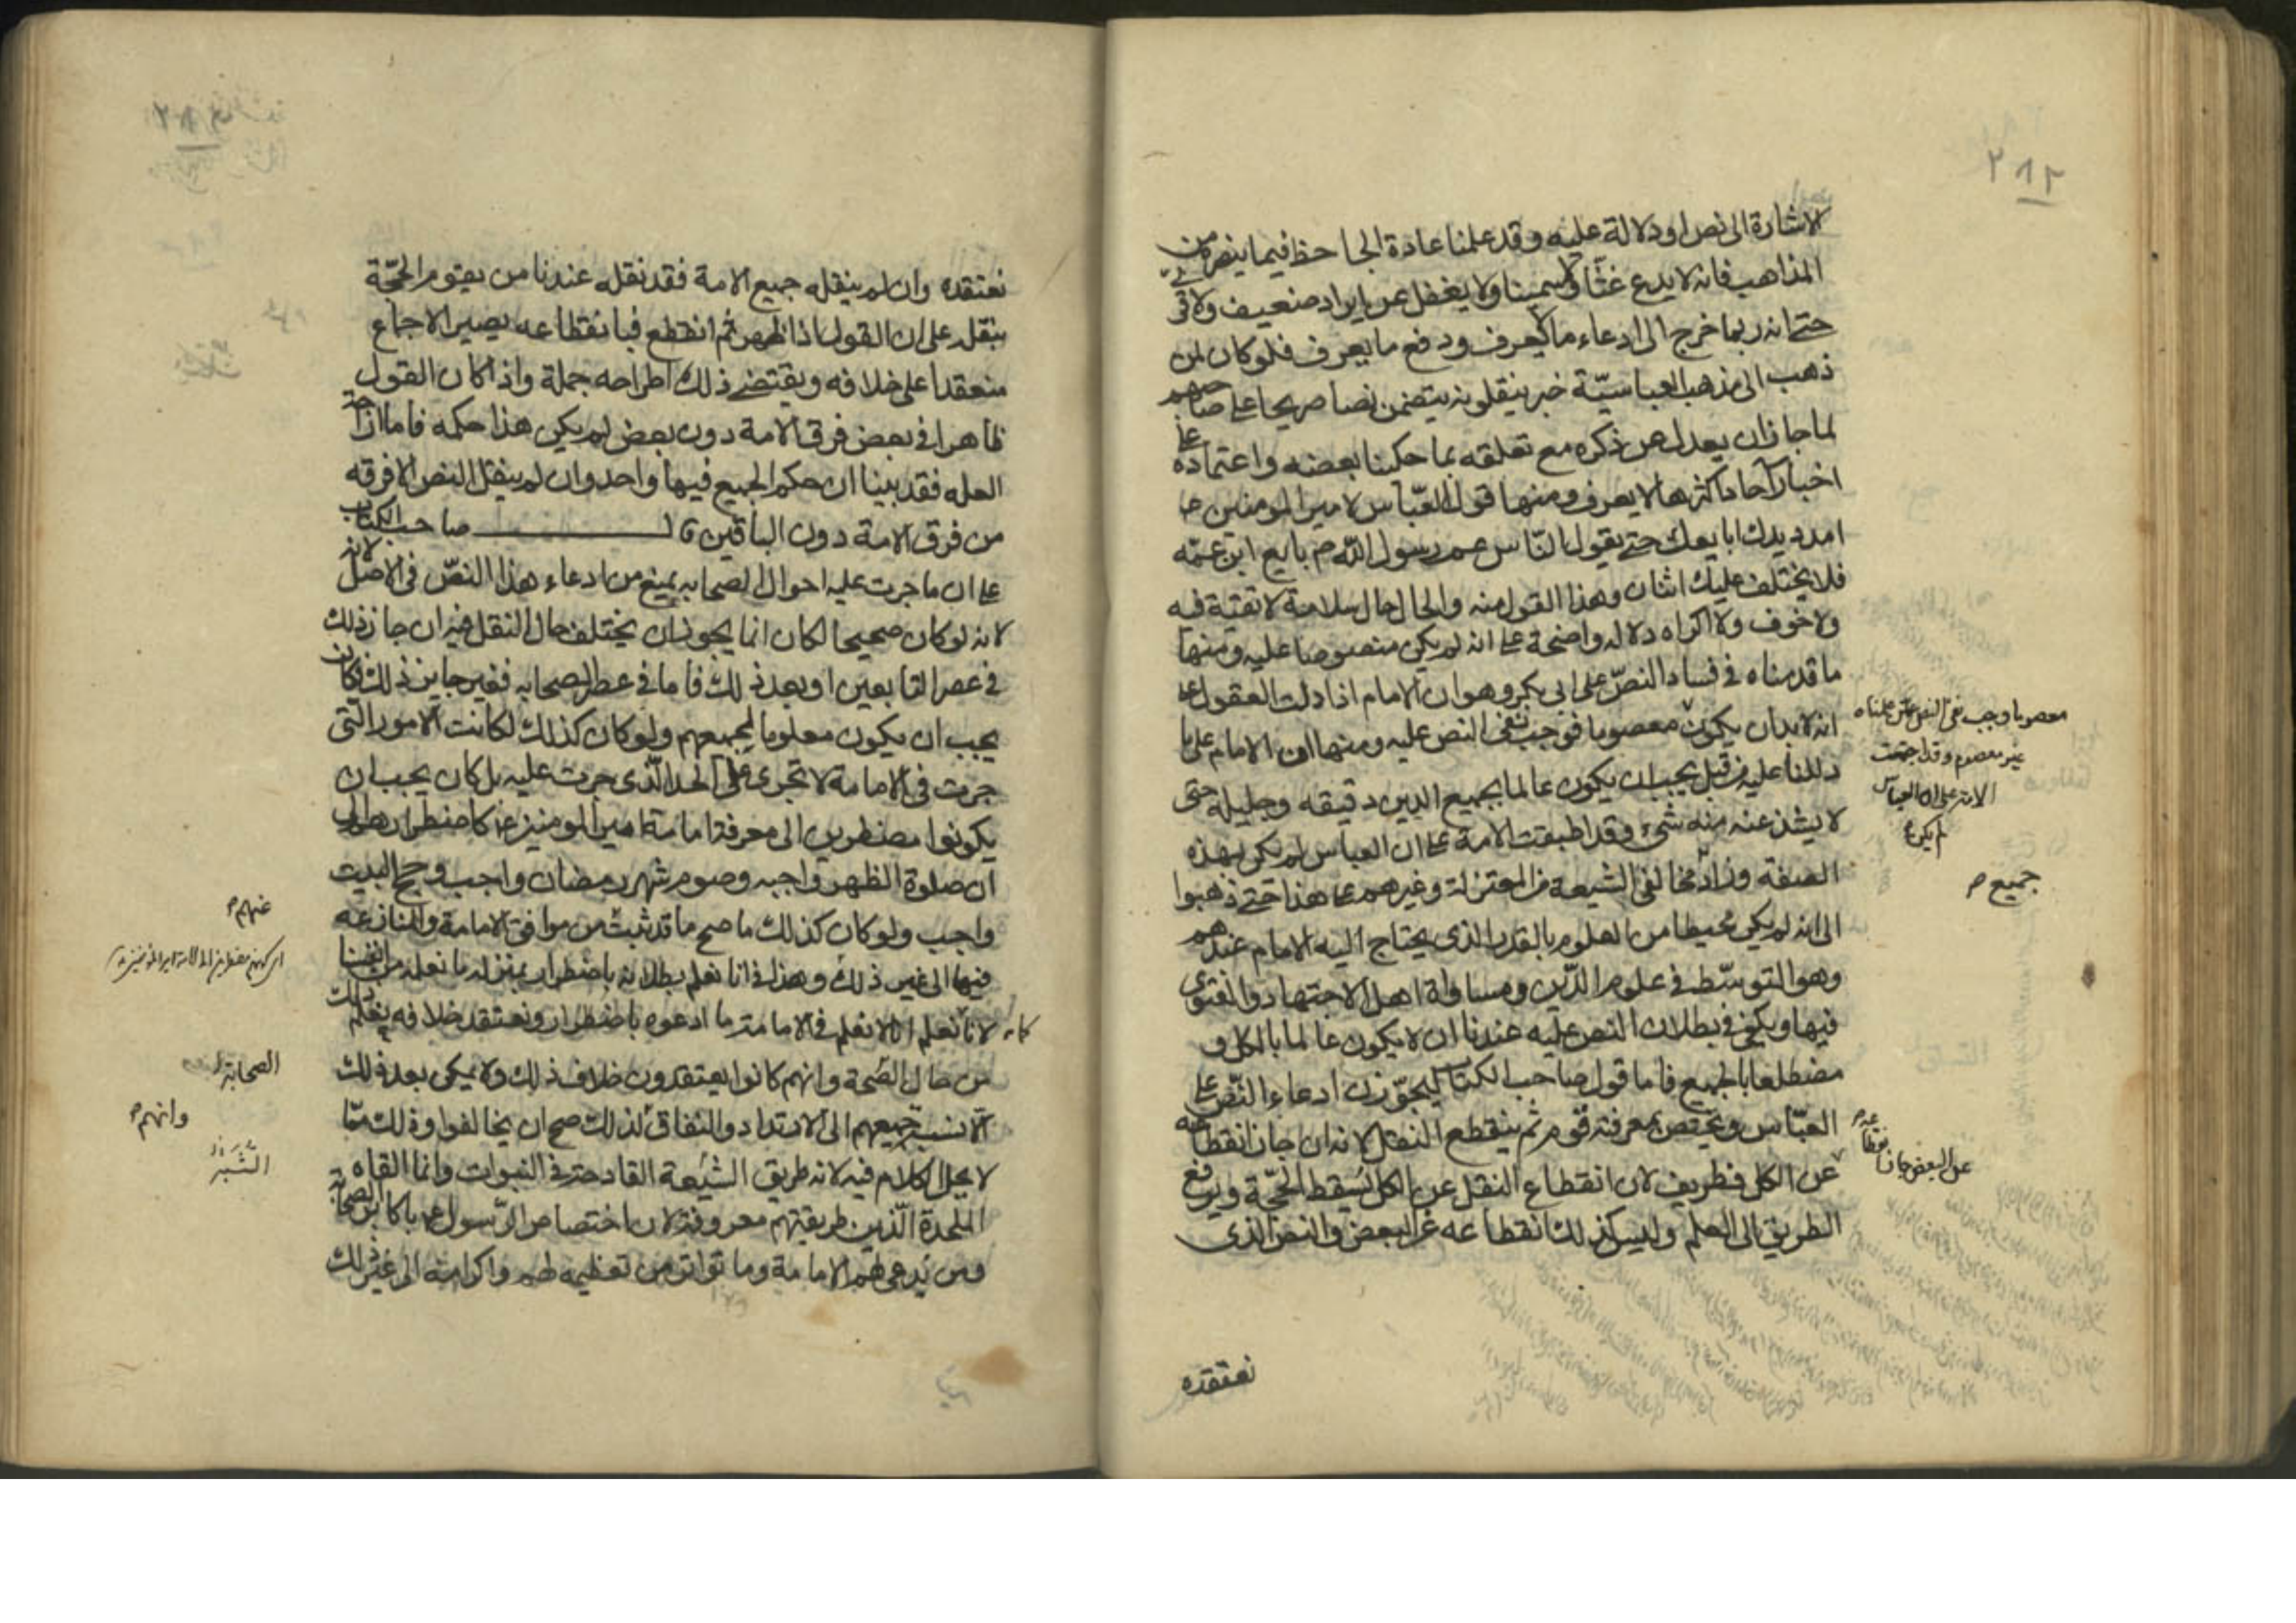 ٢٨٢
الاشارة الى نص او دلالة عليه وقد علمنا عادة الجاحظ فيما ينصره من
المذاهب فانه لا يدع غثا ولا سمينا ولا يغفل عن ايراد ضعيف ولا قوي
حتى انه ربما خرج الى ادعاء ما لا يعرف ودفع ما يعرف فلو كان لمن
ذهب الى مذهب العباسيّة خبر ينقلونه يتضمن نصا صريحا على صاحبهم
لما جاز ان يعدل عن ذكره مع تعلقه بما حكينا بعضه واعتماده على
اخبار آحاد اكثرها لا يعرف ومنها قول العبّاس لامير المومنين
امدد يدك ابايعك حتى يقول النّاس عم رسول اللّه ص بايع ابن عمّه
فلا يختلف عليك اثنان وهذا القول منه والحال حال سلامة لا تقيّة فيه
ولا خوف ولا اكراه دلاله واضحة على انه لم يكن منصوصا عليه ومنها
ما قدمناه في فساد النصّ على ابي بكر وهو ان الامام اذا دلت العقول على
انه لا بدان يكون معصوما فوجب نفى النص عليه ومنها ان الامام على ما
دللنا عليه من قبل يجب ان يكون عالما بجميع الدين دقيقه وجليله حتى
لا يشذ عنه منه شيء وقد اطبقت الامة على ان العباس لم يكن بهذه
الصفة وزاد مخالفي الشيعة من المعتزلة وغيرهم على هذا حتى ذهبوا
الى انه لم يكن محيطا من العلوم بالقدر الذى يحتاج اليه الامام عندهم
وهو التوسّط في علوم الدّين ومساواة اهل الاجتهاد والفتوى
فيها ويكفي في بطلان النص عليه عندنا ان لا يكون عالما بالكل و
مضطلعا بالجميع فاما قول صاحب الكتاب ليجوّزن ادعاء النّصّ على
العبّاس ويختص بمعرفته قوم ثم ينقطع النقل لانه ان جاز انقطاعه
عن الكل فطريف لان انقطاع النقل عن الكل يسقط الحجّة ويرفع
الطريق الى العلم وليس كذلك انقطاعه عن البعض والنص الذى
نعتقده
معصوما وجب نفى النص عمن علمناه
غير معصوم وقد اجتمعت
الامة على ان العباس
لم يكن
جميع
عن البعض جاز
نعتقده وان لم ينقله جميع الامة فقد نقله عندنا من يقوم الحجّة
بنقله على ان القول اذا ظهر ثم انقطع فبانقطاعه يصير الاجماع
منعقدا على خلافه ويقتضي ذلك اطراحه جملة واذا كان القول
ظاهرا في بعض فرق الامة دون بعض لم يكن هذا حكمه فاما ازاحة
العله فقد بينا ان حكم الجميع فيها واحد وان لم ينقل النص الا فرقه
من فرق الامة دون الباقين قال صاحب الكتاب
على ان ما جرت عليه احوال الصحابه يمنع من ادعاء هذا النصّ في الاصل لانه
لانه لو كان صحيحا لكان انما يجوز ان يختلف حال النقل فيه ان جاز ذلك
في عصر التابعين او بعد ذلك فاما في عصر الصحابه فغير جايز ذلك فكان
يجب ان يكون معلوما لجميعهم ولو كان كذلك لكانت الامور الّتي
جرت في الامامة لا تجرى على الحد الّذى جرت عليه بل كان يجب ان
يكونوا مضطرين الى معرفة امامة امير المومنين ع كاضطرارهم الى
ان صلوة الظهر واجبه وصوم شهر رمضان واجب وحج البيت
واجب ولو كان كذلك ما صح ما قد ثبت من موافق الامامة والمنازعه
فيها الى غير ذلك وهذا فانا نعلم بطلانه باضطرار بمنزله ما نعلمه من انفسنا
لانا نعلم انا لا نعلم في الامامة ما ادعوه باضطرار ونعتقد خلافه نعلم ذلك
من حال الصّحة وانهم كانوا يعتقدون خلاف ذلك ولا يمكن بعد ذلك
الا نسبة جميعهم الى الارتداد والنفاق لذلك صح ان يخالفوا وذلك ممّا
لا يحل الكلام فيه لانه طريق الشيعة القادحة في النبوات وانما القاه
الملحدة الّذين طريقتهم معروفة لان اختصاص الرّسول ع باكابر الصحابة
ومن يدعى لهم الامامة وما تواتر من تعظيمه لهم واكرامه الى غير ذلك
عنهم
الصحابة
وانهم